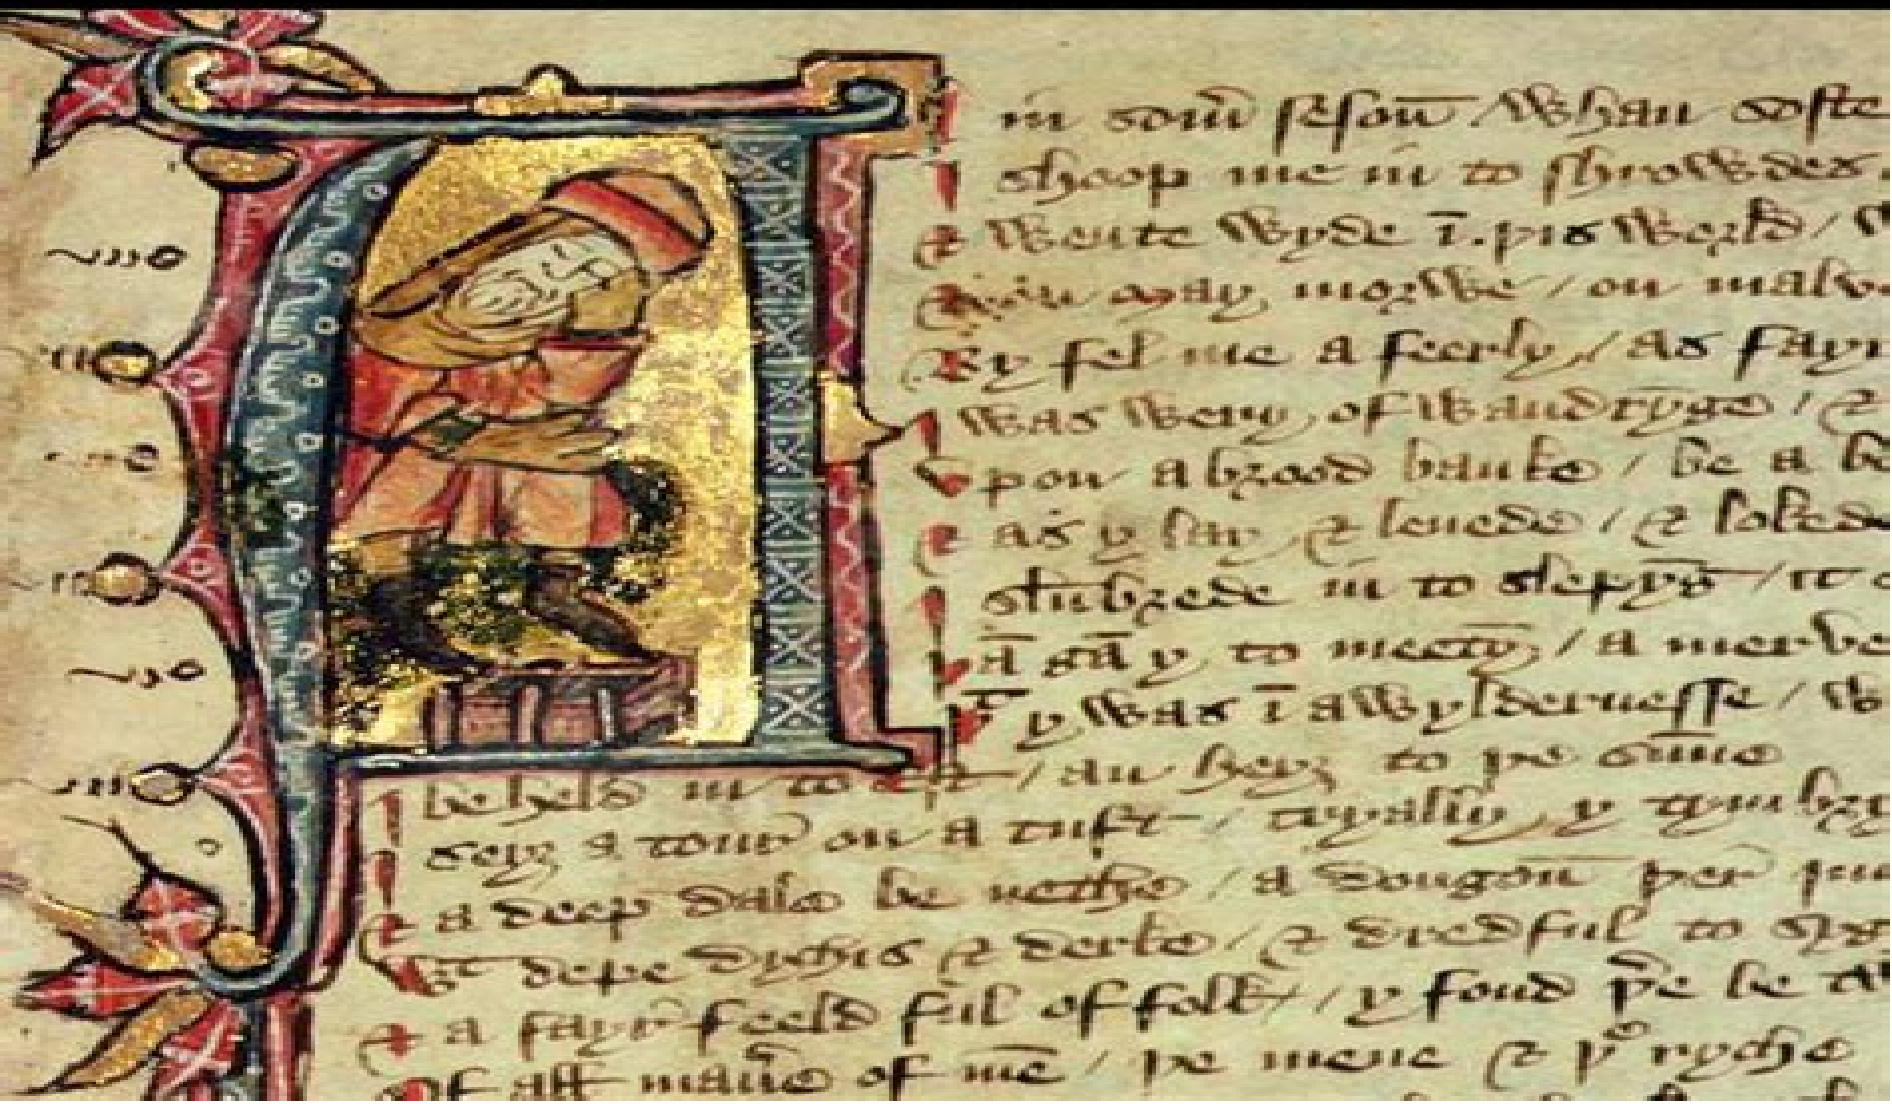 in som̄ seson̄ / Whan softe
shoop me in to shrowdes
& Wente Wyde ī þis World / W
May morwe / on malu
By fel me a feerly / as fayr
Was Wery of Wandryge / &
vpon a brood banke / be a b
& as y lay & lenede / & lokede
slūbrede in to slepyg / it
þā gā y to meety / a merue
þt y Was ī a Wyldernesse / W
beheld in to est / an hey to þe sūne
sey a tour on a tuft / ryally y tymbry
& a deep dale be nethe / a dongon̄ þer
Wt depe dychis & derke / & dredful to
& a fayr feeld ful of folk / y fond þ'e be
Of all man'e of mē / þe mene & þe ryche